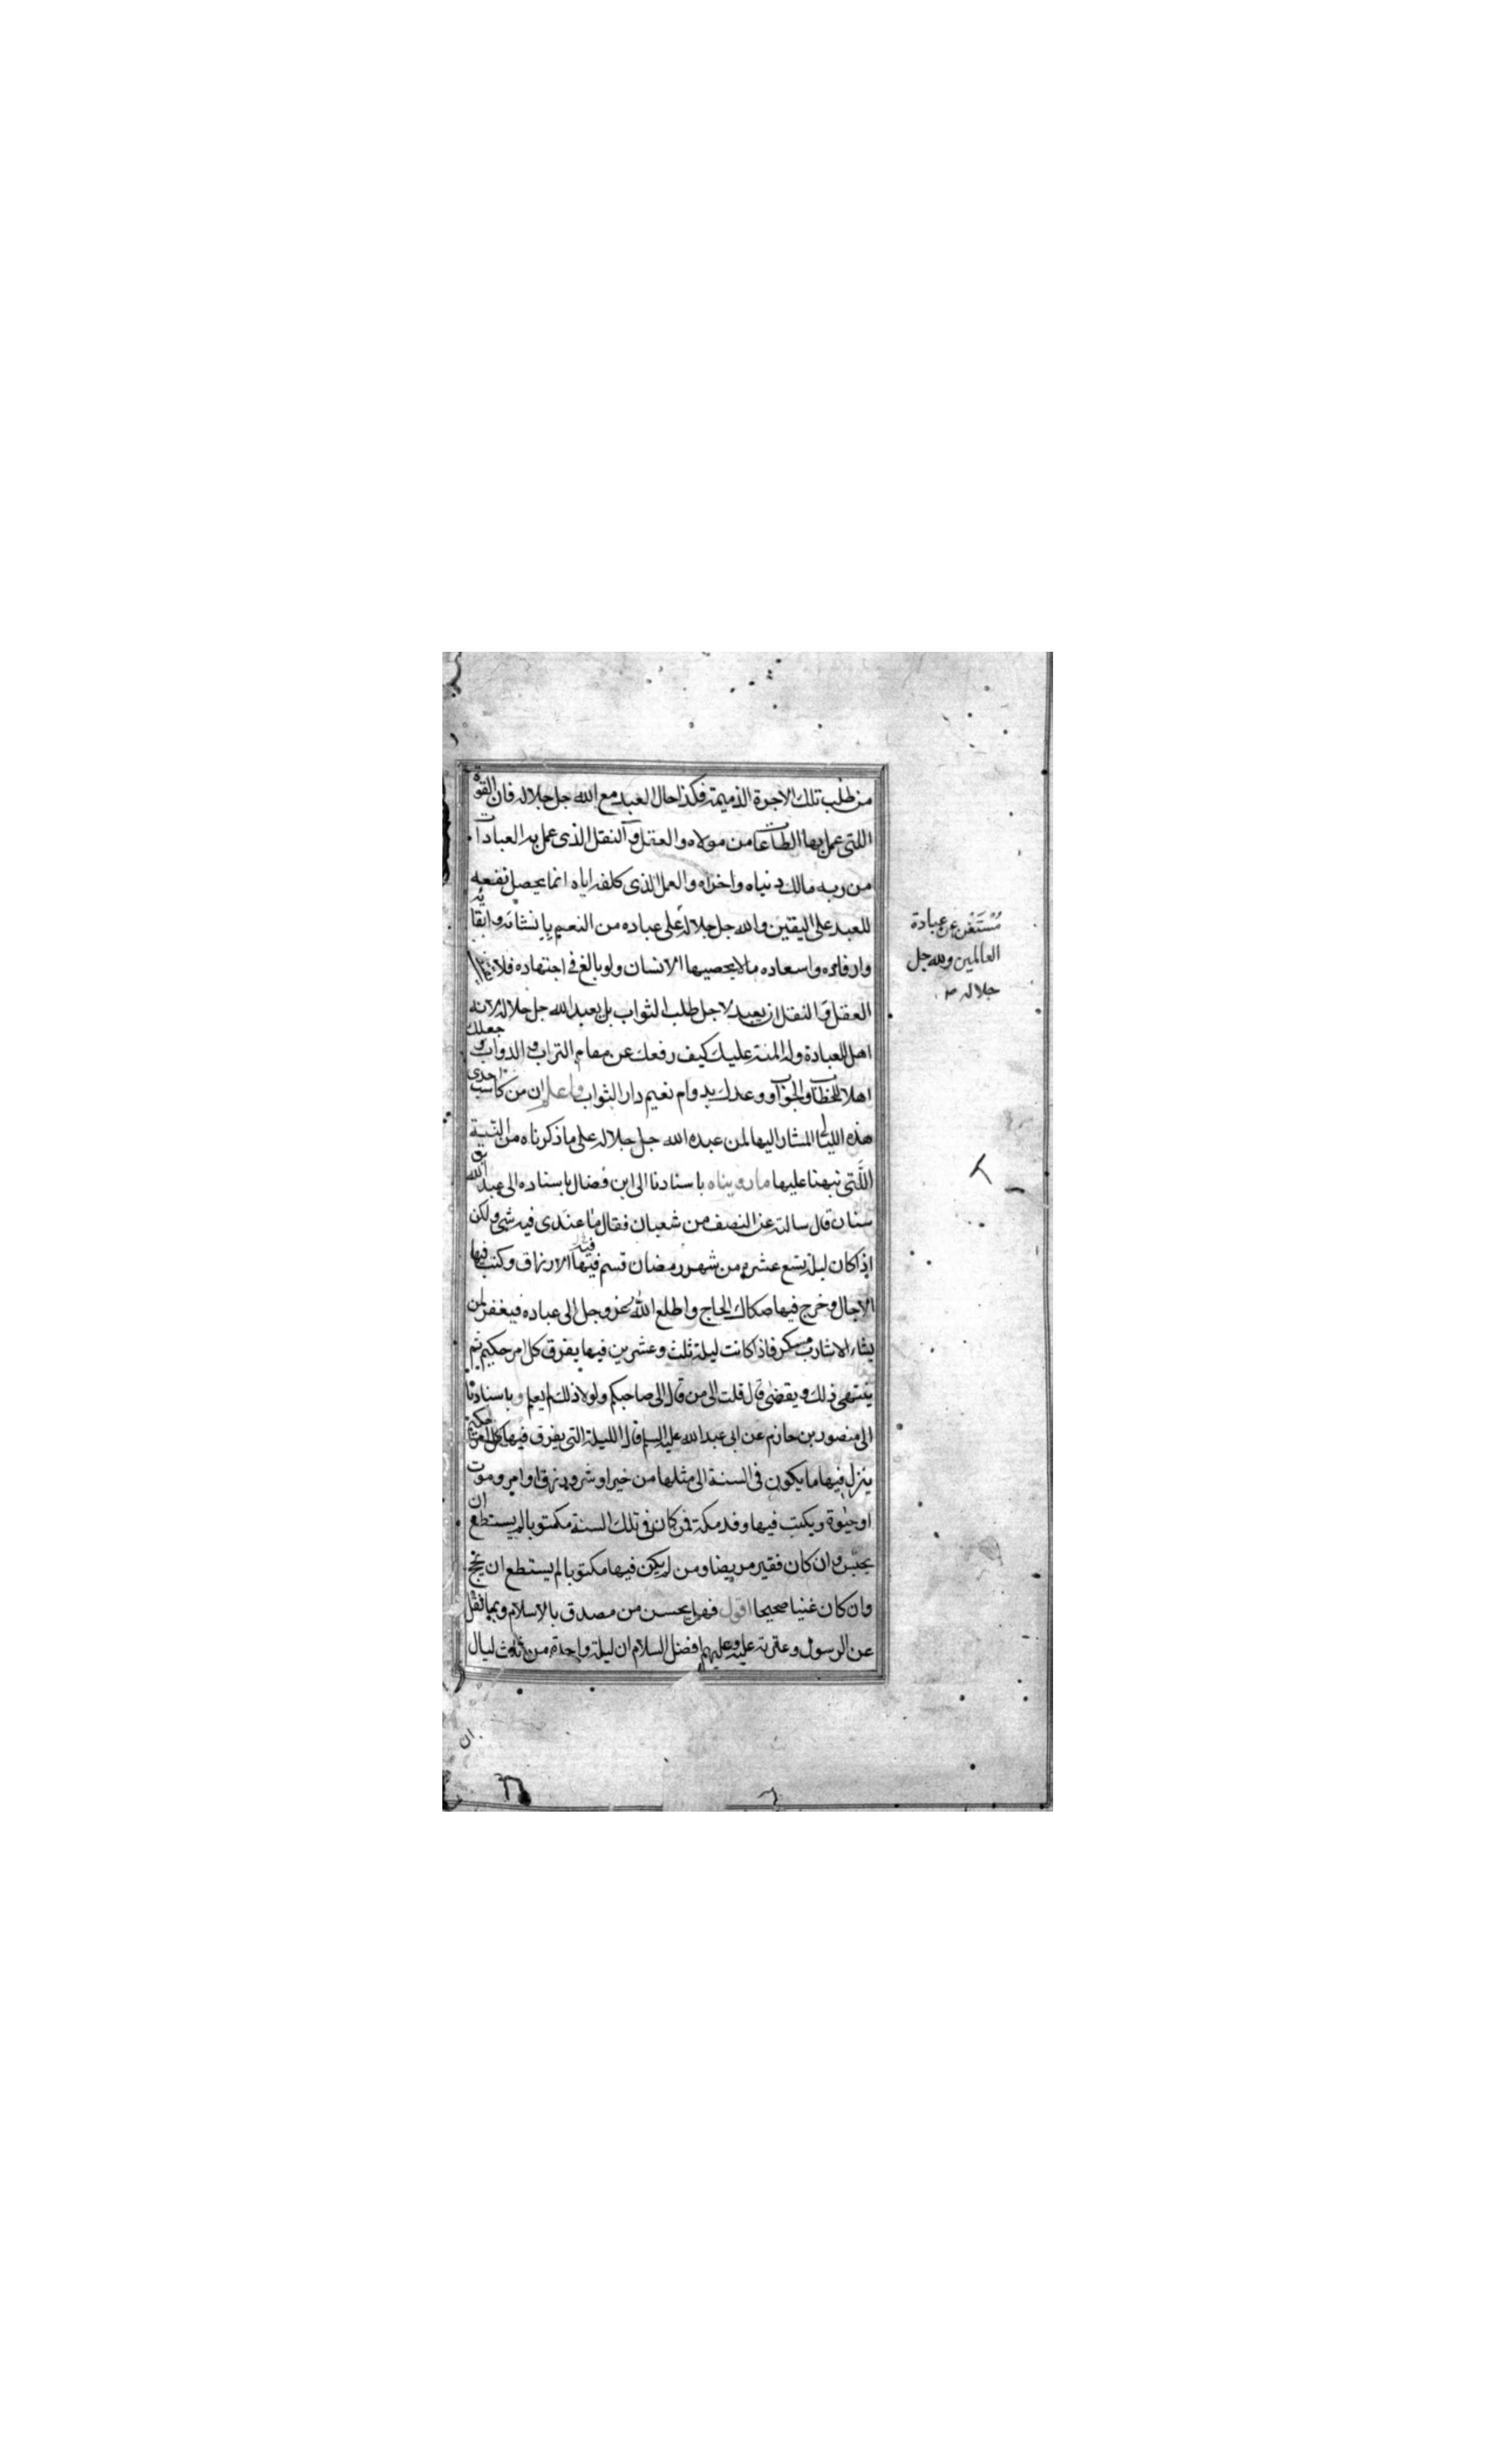 من طلب تلك الاجرة الذميمة فكذا حال العبد مع الله جل جلاله فان القوة
اللتى عمل بها الطاعات من مولاه والعقل والنقل الذى عمل به العبادات
من ربه مالك دنياه واخراه والعمل الذى كلفه اياه انما يحصل نفعه
للعبد على اليقين والله جل جلاله على عباده من النعيم بانشائه وابقائه
وارفاده واسعاده مالا يحصيها الانسان ولو بالغ فى اجتهاده فلا
العقل والنقل ان يعبد لاجل طلب الثواب بل يعبد الله جل جلاله لانه
اهل للعبادة وله المنة عليك كيف رفعك عن مقام التراب والدواب وجعلك
اهلا للخطاب والجواب ووعدك بدوام نعيم دار الثواب واعلم ان من مكاسب احدى
هذه الليالى المشار اليها لمن عبده الله جل جلاله على ما ذكرناه من النية
اللتى نبهنا عليها ما رويناه باسنادنا الى ابن فضال باسناده الى عبد الله بن
سنان قال سالته عن النصف من شعبان فقال ما عندى فيه شى ولكن
اذا كان ليلة تسع عشرة من شهر رمضان قسم فيها الارزاق وكتب فيها
الاجال وخرج فيها صكاك الحاج واطلع الله عز وجل الى عباده فيغفر لمن
يشاء الا شارب مسكر فاذا كانت ليلة ثلث وعشرين فيها يفرق كل امر حكيم ثم
ينتهى ذلك ويقضى قال قلت الى من قال الى صاحبكم ولولا ذلك لم يعلم وباسنادنا
الى منصور بن حازم عن ابى عبد الله عليه السلم قال الليلة التى يفرق فيها كل امر حكيم
ينزل فيها ما يكون فى السنة الى مثلها من خير او شر او رزق او امر وموت
او حيوة ويكتب فيها وفد مكة فمن كان فى تلك السنة مكتوبا لم يستطع ان
يحبس وان كان فقير مريضا ومن لم يكن فيها مكتوبا لم يستطع ان يحج
وان كان غنيا صحيحا اقول فهل يحسن من مصدق بالاسلام وبما نقل
عن الرسول وعترته عليه وعليهم افضل السلام ان ليلة واحدة من ثلاث ليال
مستغن عن عبادة
العالمين ولله جل
جلاله